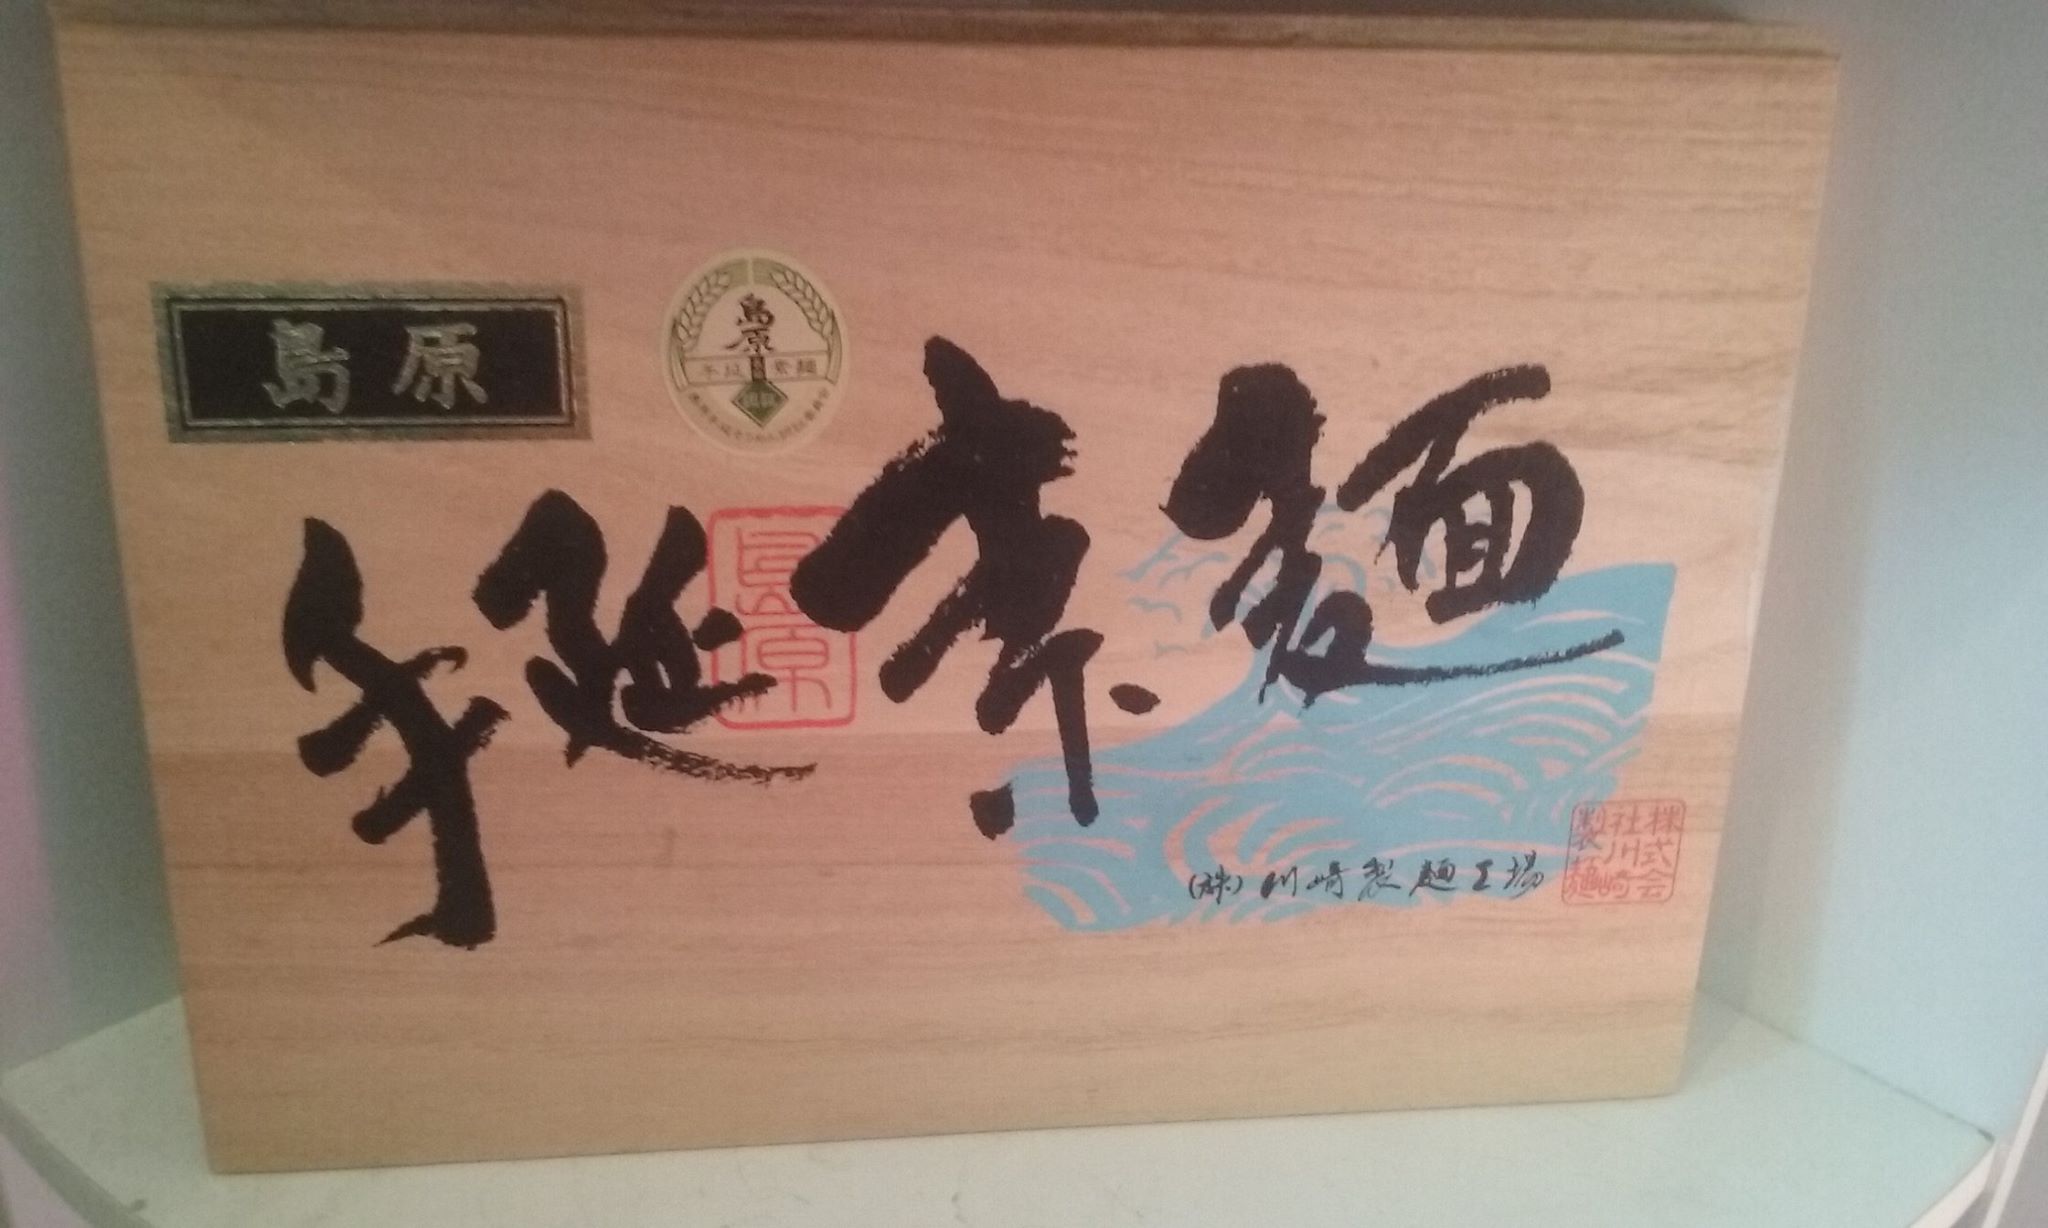 島原
島原
手延 素麺
島原
手延素麺
(株)川崎製麺工場
株式会
社川崎
製麺